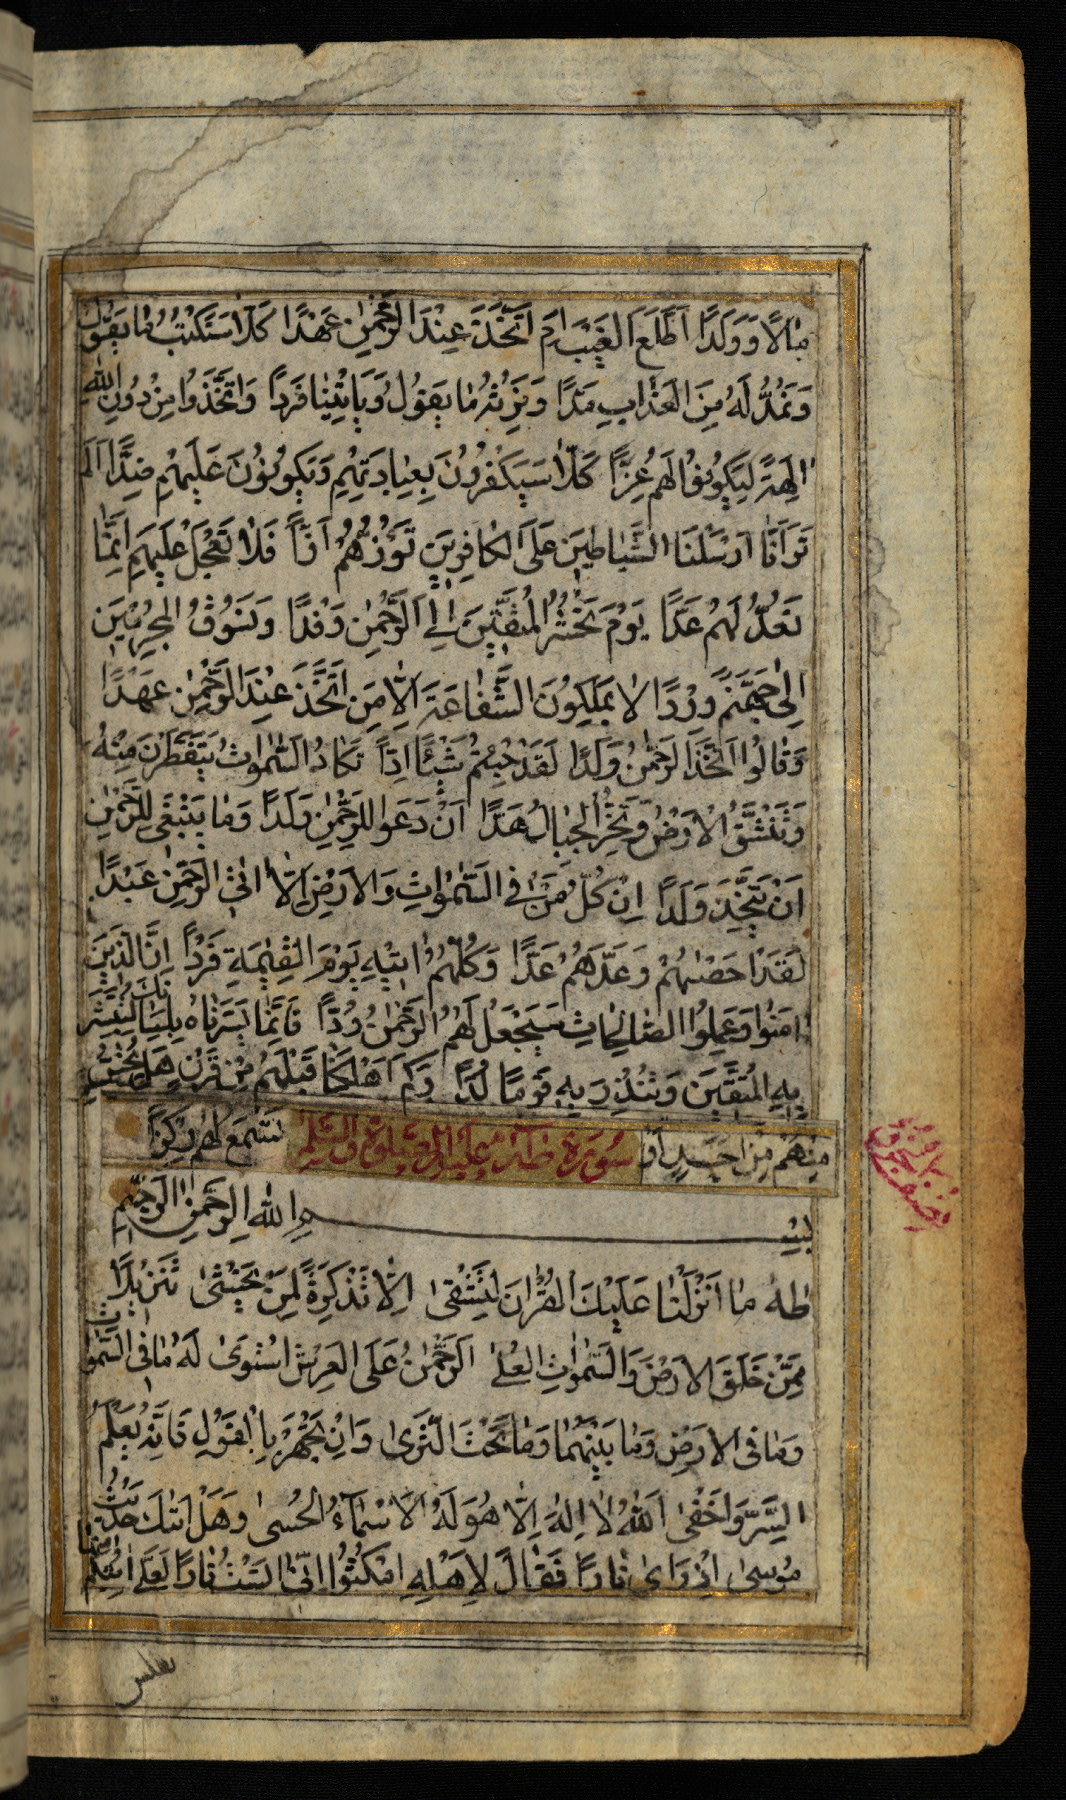 مالا وولدا اطلع الغيب ام اتخذ عند الرحمن عهدا كلا سنكتب ما يقول
ونمد له من العذاب مدا ونرثه ما يقول ويأتينا فردا واتخذوا من دون الله
الهة ليكونوا لهم عزا كلا سيكفرون بعبادتهم ويكونون عليهم ضدا الم
تر انا ارسلنا الشياطين على الكافرين تؤزهم ازا فلا تعجل عليهم انما
نعد لهم عدا يوم نحشر المتقين الى الرحمن وفدا ونسوق المجرمين
الى جهنم وردا لا يملكون الشفاعة الا من اتخذ عند الرحمن عهدا
وقالوا اتخذ الرحمن ولدا لقد جئتم شيئا ادا تكاد السموات يتفطرن منه
وتنشق الارض وتخر الجبال هدا ان دعوا للرحمن ولدا وما ينبغى للرحمن
ان يتخذ ولدا ان كل من فى السموات والارض الا اتى الرحمن عبدا
لقد احصيهم وعدهم عدا وكلهم اتيه يوم القيمة فردا ان الذين
امنوا وعملوا الصالحات سيجعل لهم الرحمن ودا فانما يسرناه بلسانك لتبشر
به المتقين وتنذر به قوما لدا وكم اهلكنا قبلهم من قرن هل تحس
منهم من احد او تسمع لهم ركزا
سورة طه عليه الصلوة والسلم
بسم الله الرحمن الرحيم
طه ما انزلنا عليك القران لتشقى الا تذكرة لمن يخشى تنزيلا
ممن خلق الارض والسموات العلى الرحمن على العرش استوى له ما فى السموات
وما فى الارض وما بينهما وما تحت الثرى وان تجهر بالقول فانه يعلم
السر واخفى الله لا اله الا هو له الاسماء الحسنى وهل اتيك حديث
موسى اذ راى نارا فقال لاهله امكثوا انى انست نارا لعلى اتيكم منها
بقبس